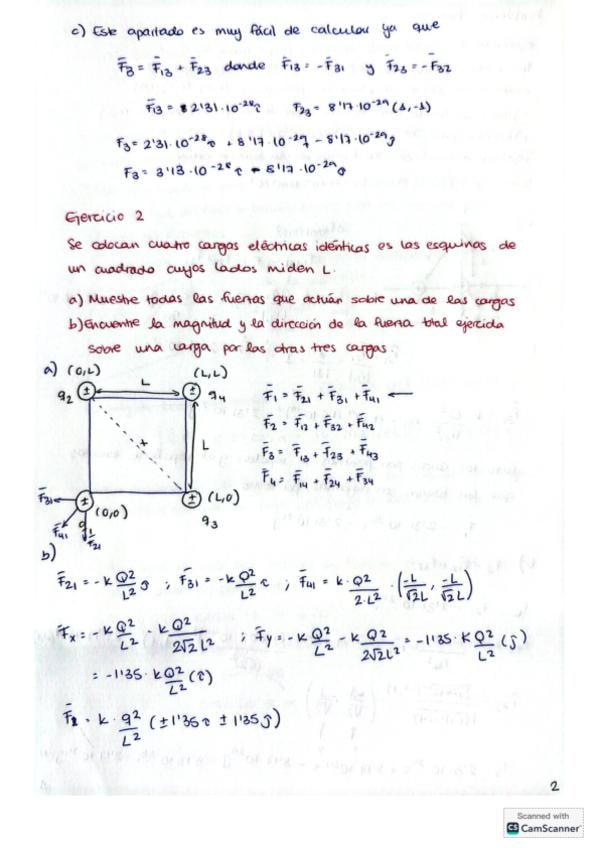 c) Este apartado es muy fácil de calcular ya que
F̄3 = F̄13 + F̄23 donde F̄13 = -F̄31 y F̄23 = -F̄32
F̄13 = 2'31·10⁻²⁸ î F23 = 8'17·10⁻²⁹ (1,-1)
F3 = 2'31·10⁻²⁸ î + 8'17·10⁻²⁹ - 8'17·10⁻²⁹ ĵ
F3 = 3'13·10⁻²⁸ î - 8'17·10⁻²⁹ ĵ
Ejercicio 2
Se colocan cuatro cargas eléctricas idénticas es las esquinas de
un cuadrado cuyos lados miden L.
a) Muestre todas las fuerzas que actúan sobre una de las cargas
b) Encuentre la magnitud y la dirección de la fuerza total ejercida
sobre una carga por las otras tres cargas.
a) (0,L) L (L,L)
q2 ± ± q4
F̄1 = F̄21 + F̄31 + F̄41 ←
F̄2 = F̄12 + F̄32 + F̄42
F̄3 = F̄13 + F̄23 + F̄43
F̄4 = F̄14 + F̄24 + F̄34
L
F̄31 ± (0,0) ± (L,0)
F̄41 q1 F̄21 q3
b)
F̄21 = -k Q²/L² ĵ ; F̄31 = -k Q²/L² î ; F̄41 = k · Q²/2·L² · (-L/√2L, -L/√2L)
F̄x = -k Q²/L² - k Q²/2√2L² ; F̄y = -k Q²/L² - k Q²/2√2L² = -1'35·k Q²/L² (ĵ)
= -1'35 · k Q²/L² (î)
F̄R = k · q²/L² (±1'35 î ± 1'35 ĵ)
2
Scanned with
CS CamScanner